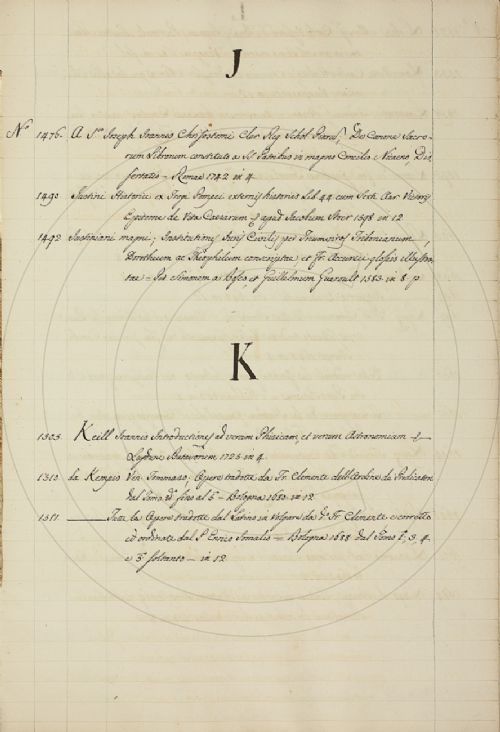 J
Nº 1476. A Sto Joseph Joannes Chrisostomi Cler. Reg. Schol. Piarum, De Canone Sacro-
rum Librorum constituto a SS. Patribus in magno Concilio Nicaeno, Dis
sertatio - Romae 1742 in 4
1490 Justini Historiae ex Trogi Pompei externis historiis Lib. 44 cum Sexti Aur. Victoris
Epitome de Vita Caesarum apud Jacobum Stoer 1598 in 12
1492 Justiniani magni, Institutiones Juris Civilis per Triumviros Tribonianum,
Dorotheum ac Theophilum conscriptae, et Fr. Accursii glossis illustra-
tae - Simonem a Bosco, et Guillelmum Gueroult 1583 in 8
K
1303 Keill Joannis Introductiones ad veram Phisicam, et veram Astronomiam
Lugduni Batavorum 1725 in 4.
1310 da Kempis Ven. Tommaso, Opere tradotte da Fr. Clemente dell'Ordine de Predicatori
dal Tomo fino al 5 - Bologna in 12
1311 Tutte le Opere tradotte dal Latino in Volgare da Fr. Clemente e corrette
ed ordinate dal P. Enrico - Bologna 1688 dal Tomo 1, 3, 4.
e 5 soltanto - in 12